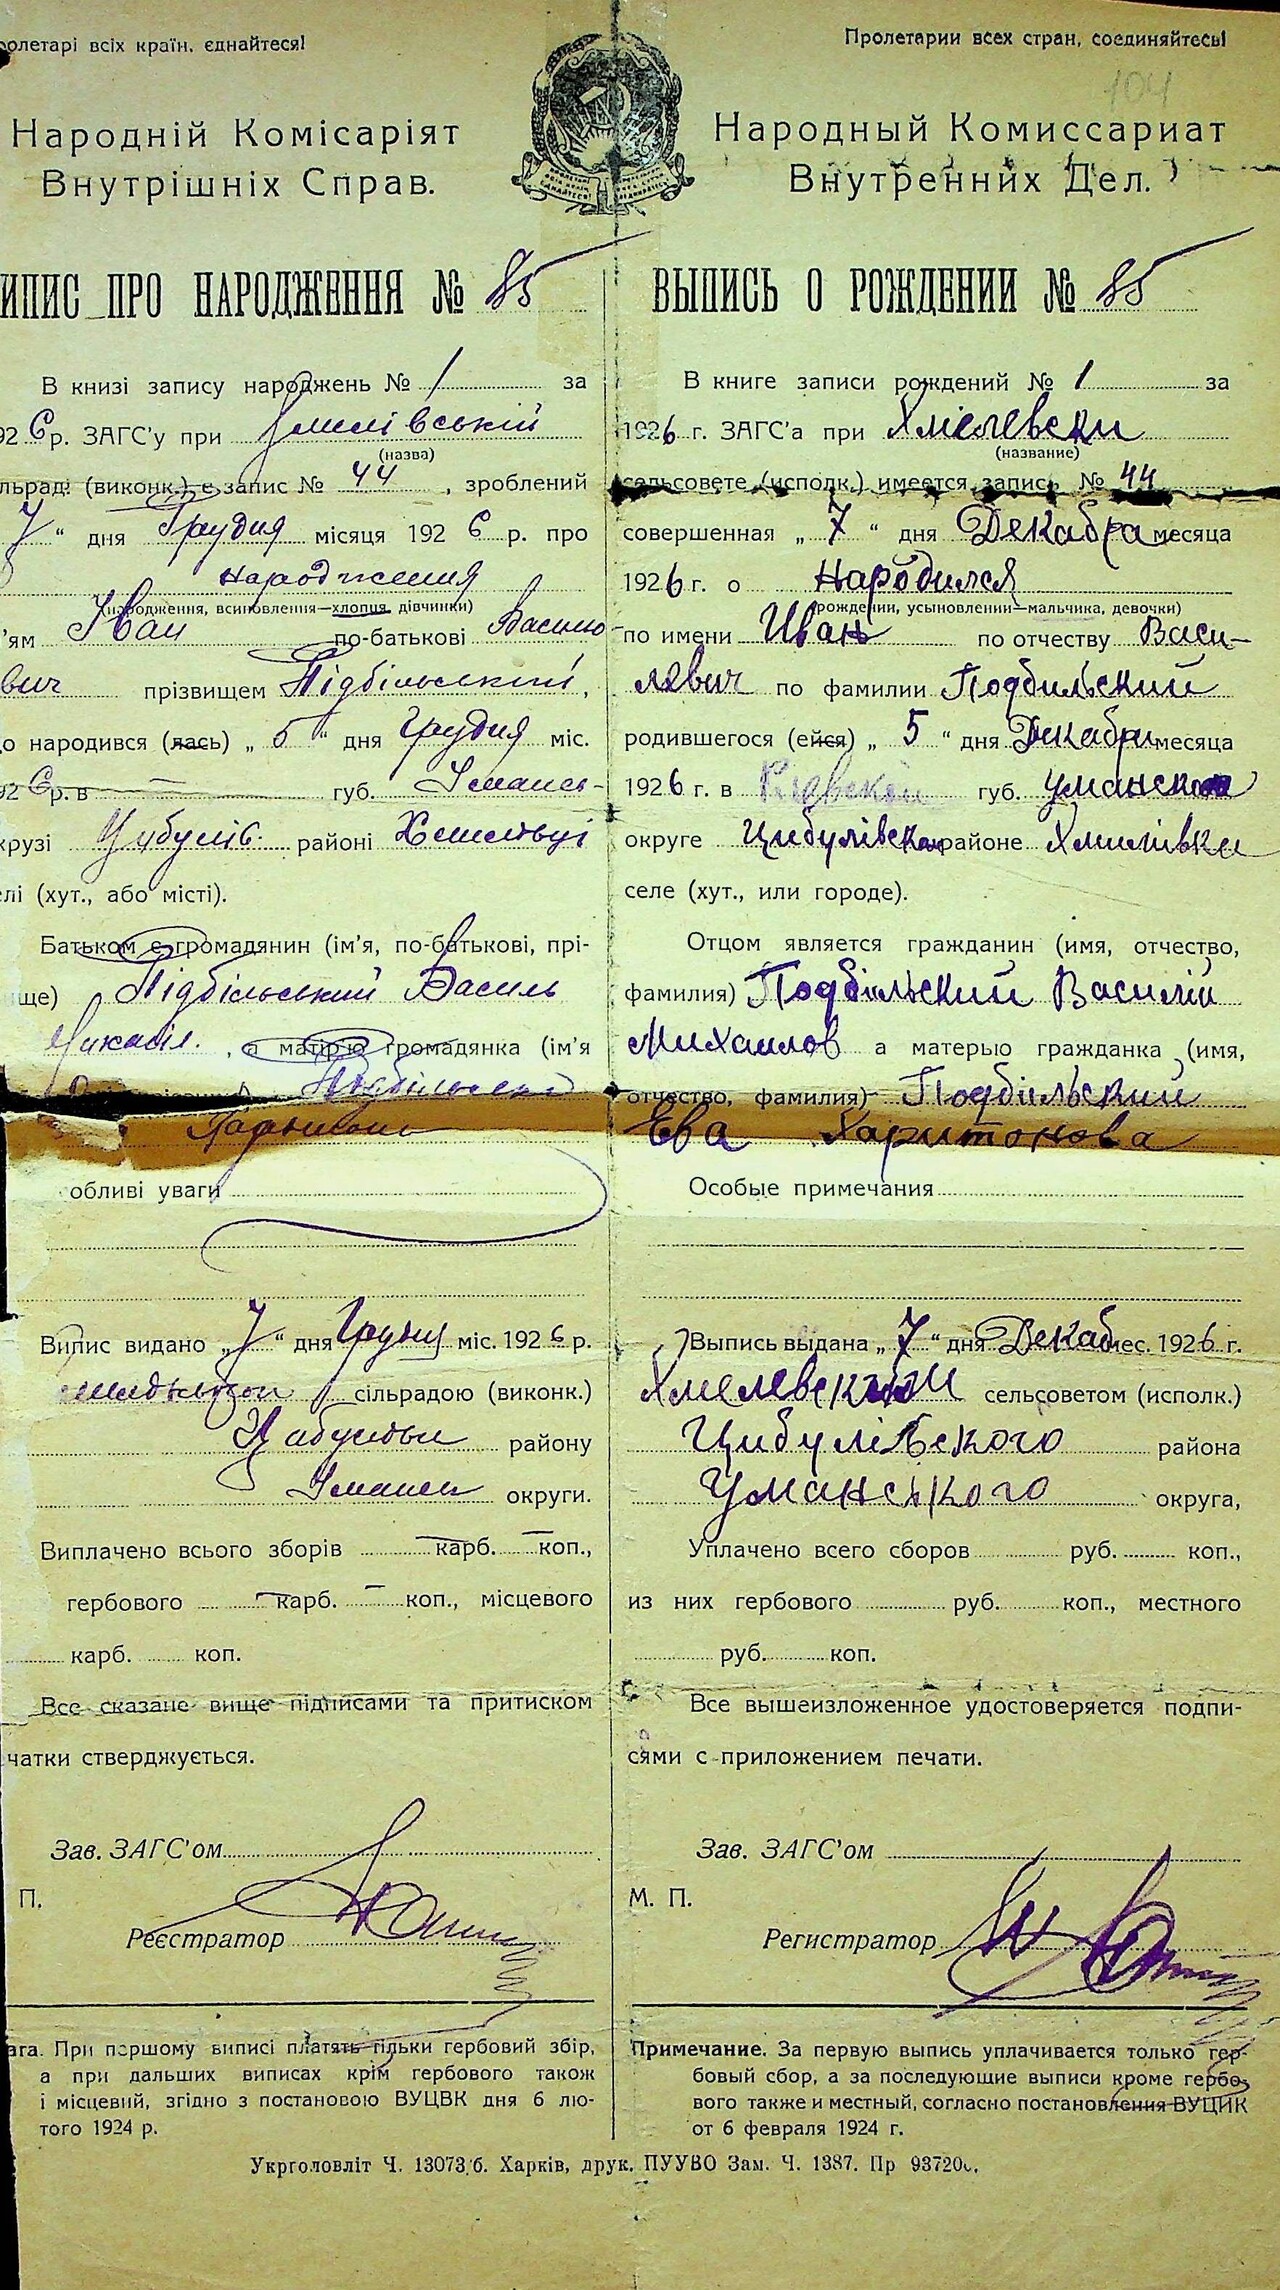 ролетарі всіх країн, єднайтеся!
Народній Комісаріят
Внутрішніх Справ.
ИПИС ПРО НАРОДЖЕННЯ № 85
В книзі запису народжень № 1 за
926 р. ЗАГС'у при
(назва)
льраді (виконк.) є запис № 44, зроблений
7 " дня Грудня місяця 1926 р. про
народження
(народження, всиновлення—хлопця, дівчинки)
'ям Іван по-батькові Василь-
вич прізвищем Підбільський,
о народився (лась) „ 5 " дня Грудня міс.
926 р. в — губ. Умансь-
крузі Цибулів. районі
елі (хут., або місті).
Батьком є громадянин (ім'я, по-батькові, прі-
ще) Підбільський Василь
Михайл. , а матір'ю громадянка (ім'я
обливі уваги
Випис видано „ 7 " дня Грудня міс. 1926 р.
сільрадою (виконк.)
району
Уманськ округи.
Виплачено всього зборів — карб. — коп.,
гербового — карб. — коп., місцевого
карб. коп.
Все сказане вище підписами та притиском
чатки стверджується.
Зав. ЗАГС'ом
П.
Реєстратор
ага. При першому виписі платять тільки гербовий збір,
а при дальших виписах крім гербового також
і місцевий, згідно з постановою ВУЦВК дня 6 лю-
того 1924 р.
Пролетарии всех стран, соединяйтесь!
104
Народный Комиссариат
Внутренних Дел.
ВЫПИСЬ О РОЖДЕНИИ № 85
В книге записи рождений № 1 за
1926 г. ЗАГС'а при Хмелевски
(название)
сельсовете (исполк.) имеется запись № 44
совершенная „ 7 " дня Декабра месяца
1926 г. о Народился
(рождении, усыновлении—мальчика, девочки)
по имени Иван по отчеству Васи-
левич по фамилии Подбильский
родившегося (ейся) „ 5 " дня Декабри месяца
1926 г. в Киевской губ. Уманской
округе Цибулівском районе Хмилівки
селе (хут., или городе).
Отцом является гражданин (имя, отчество,
фамилия) Подбільский Василій
Михаилов а матерью гражданка (имя,
отчество, фамилия) Подбільский
Ева Харитонова
Особые примечания
Выпись выдана „ 7 " дня Декаб мес. 1926 г.
Хмелевский сельсоветом (исполк.)
Цибулівского района
Уманського округа,
Уплачено всего сборов руб. коп.,
из них гербового руб. коп., местного
руб. коп.
Все вышеизложенное удостоверяется подпи-
сями с приложением печати.
Зав. ЗАГС'ом
М. П.
Регистратор
Примечание. За первую выпись уплачивается только гер-
бовый сбор, а за последующие выписи кроме гербо-
вого также и местный, согласно постановления ВУЦИК
от 6 февраля 1924 г.
Укрголовліт Ч. 13073/б. Харків, друк. ПУУВО Зам. Ч. 1387. Пр 93720с.